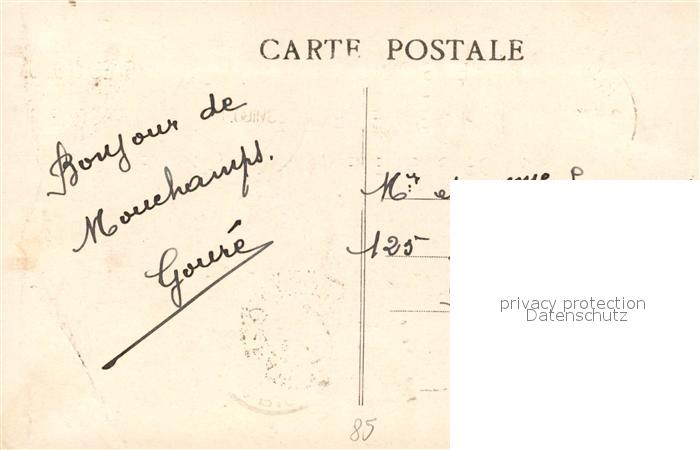 CARTE POSTALE
Bonjour de
Mouchamps.
Gouré
Mr et Mme
125
85
privacy protection
Datenschutz